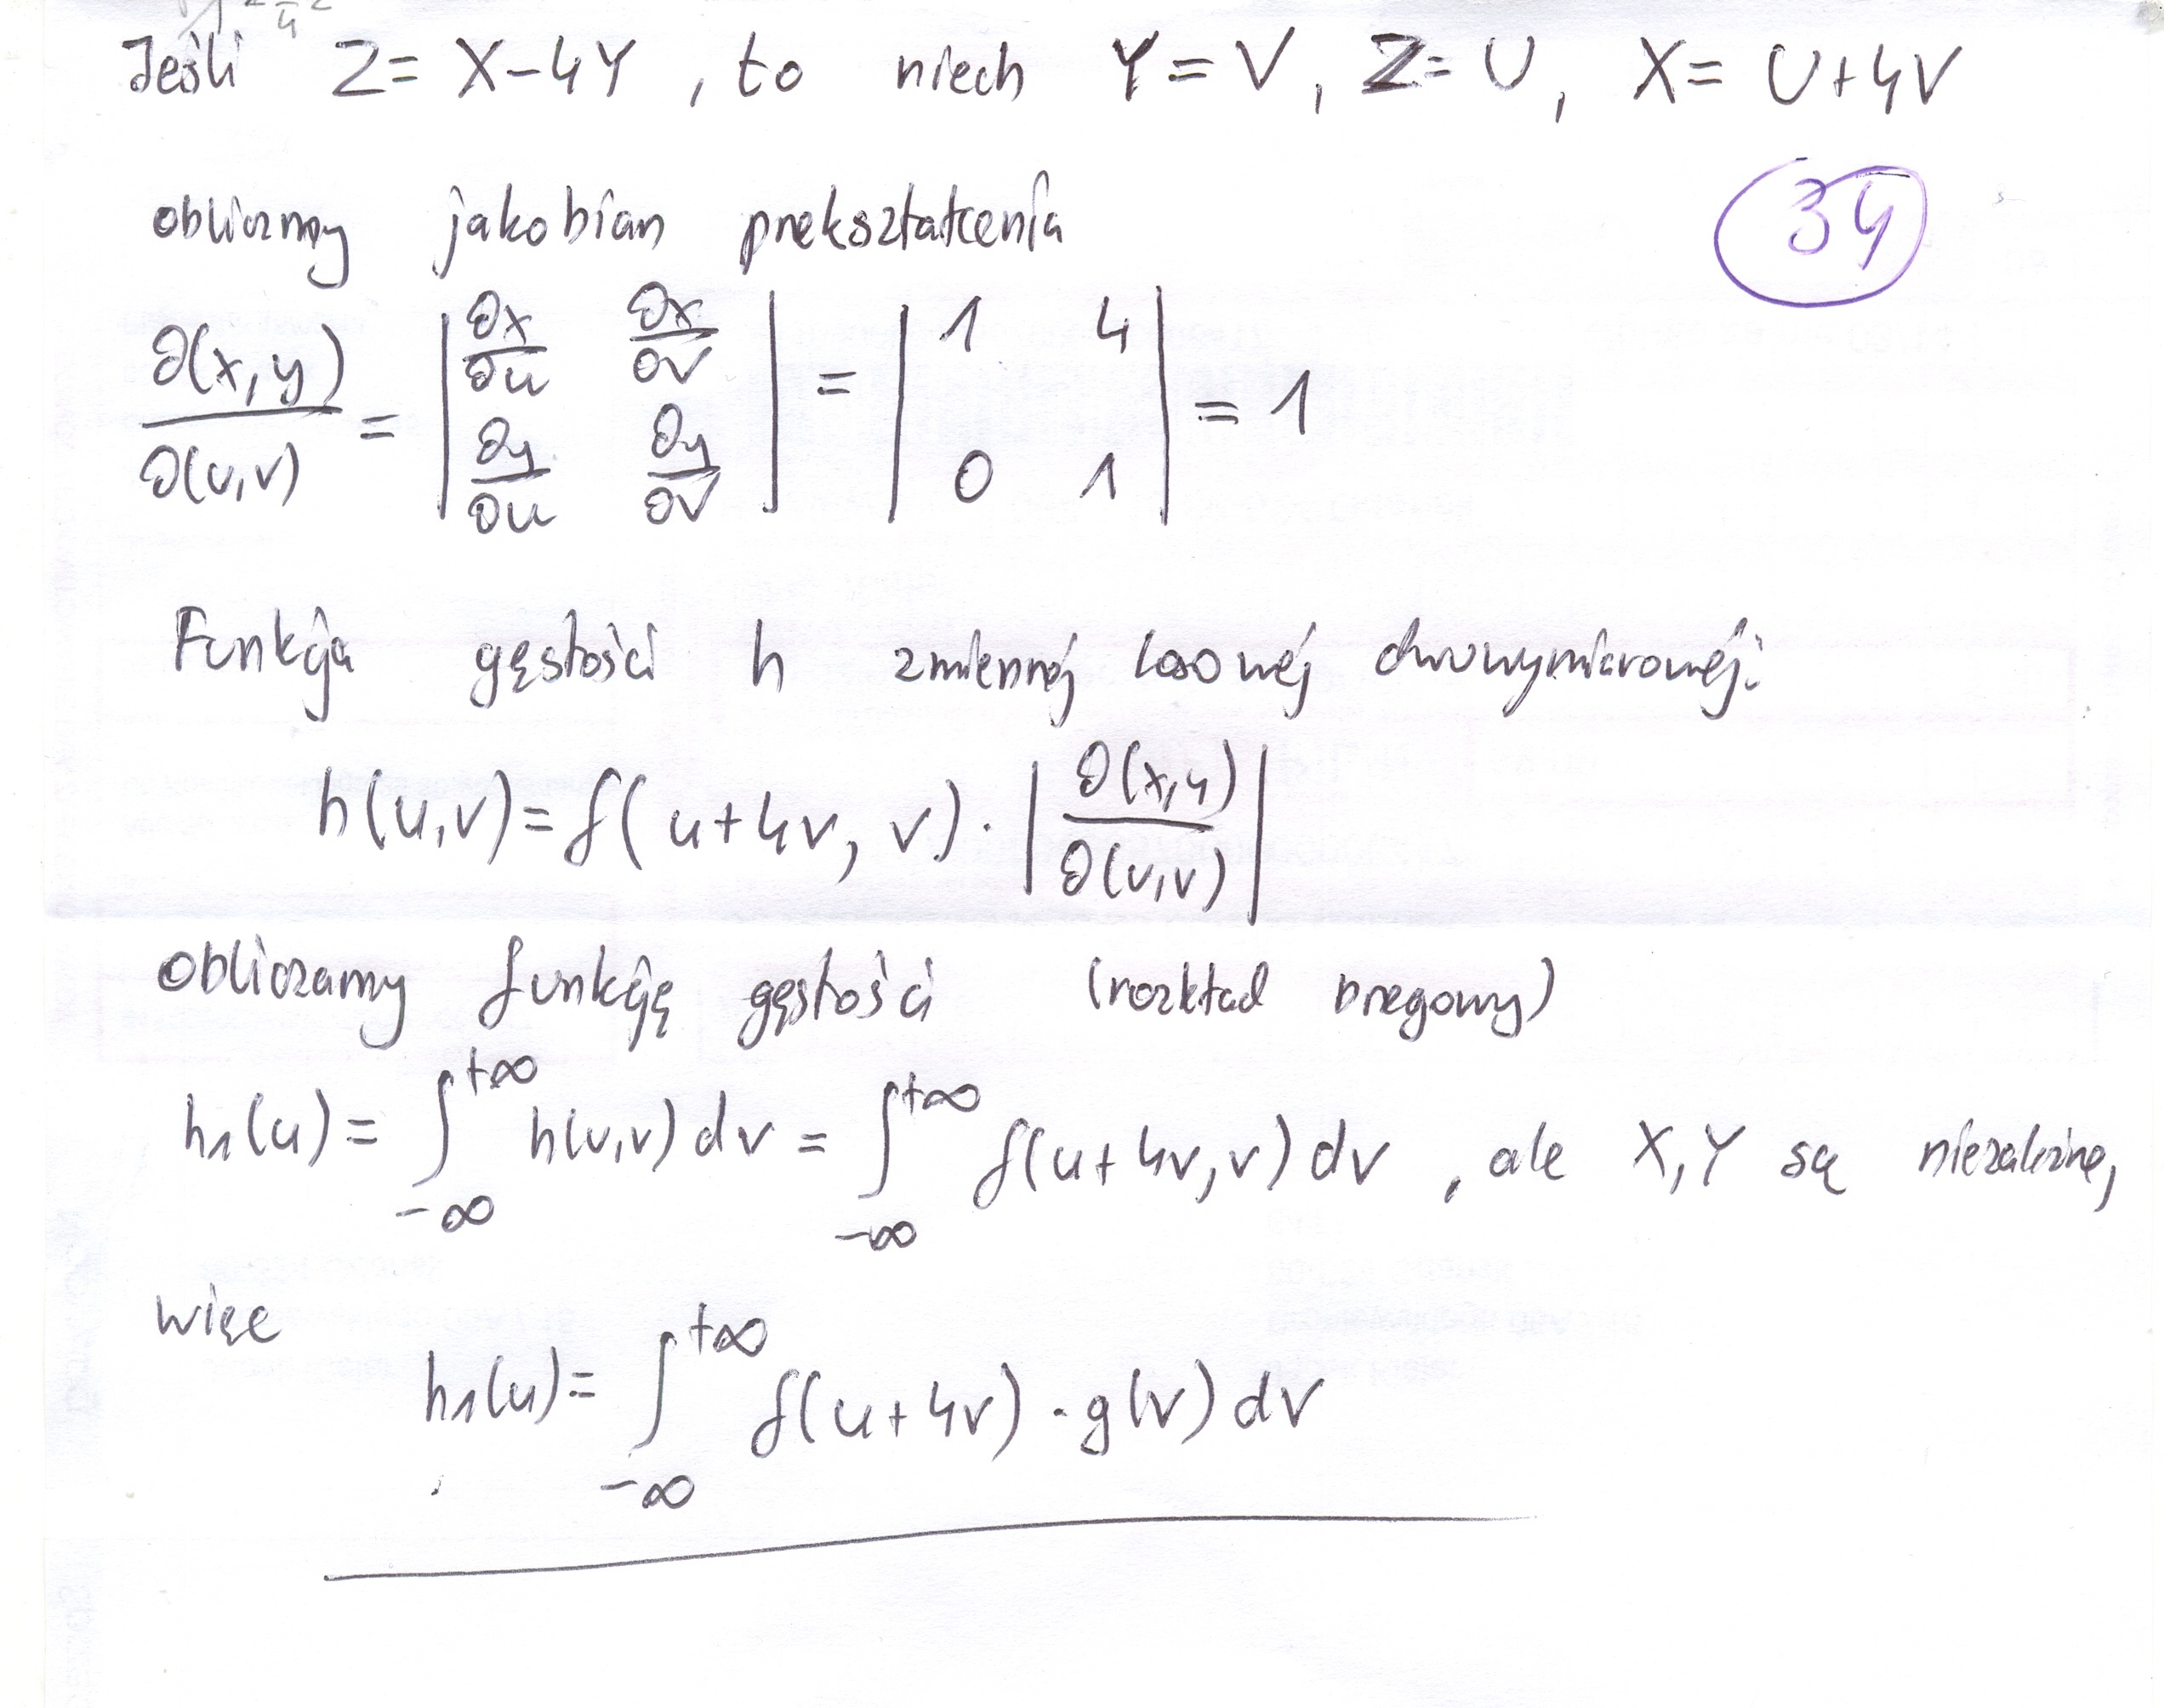 Jeśli Z = X-4Y, to niech Y = V, Z = U, X = U+4V
34
obliczmy jakobian przekształcenia
∂(x,y)/∂(u,v) = | ∂x/∂u ∂x/∂v ; ∂y/∂u ∂y/∂v | = | 1 4 ; 0 1 | = 1
Funkcja gęstości h zmiennej losowej dwuwymiarowej:
h(u,v) = f(u+4v, v) · | ∂(x,y)/∂(u,v) |
Obliczamy funkcję gęstości (rozkład brzegowy)
h₁(u) = ∫_{-∞}^{+∞} h(u,v) dv = ∫_{-∞}^{+∞} f(u+4v, v) dv, ale X, Y są niezależne,
więc
h₁(u) = ∫_{-∞}^{+∞} f(u+4v) · g(v) dv